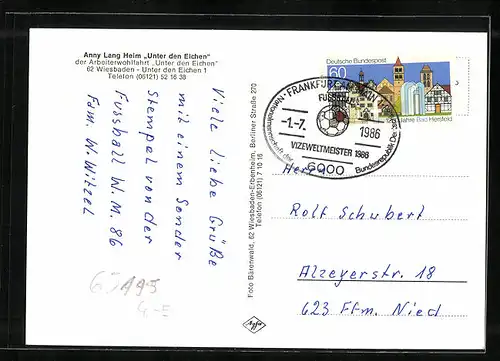 Anny Lang Heim „Unter den Eichen"
der Arbeiterwohlfahrt „Unter den Eichen"
62 Wiesbaden - Unter den Eichen 1
Telefon (06121) 52 16 38
Viele liebe Grüße
mit einem Sonder
Stempel von der
Fussball W.M. 86
Fam. W. Witzel
Foto Bärenwald, 62 Wiesbaden-Erbenheim, Berliner Straße 210
Telefon (06121) 7 10 16
Agfa
Deutsche Bundespost
60
Jahre Bad Hersfeld
FRANKFURT AM MAIN
FUSSBALL
-1.-7. 1986
VIZEWELTMEISTER 1986
Nationalmannschaft der Bundesrepublik
6000
Herrn
Rolf Schubert
Alzeyerstr. 18
623 Ffm. Nied